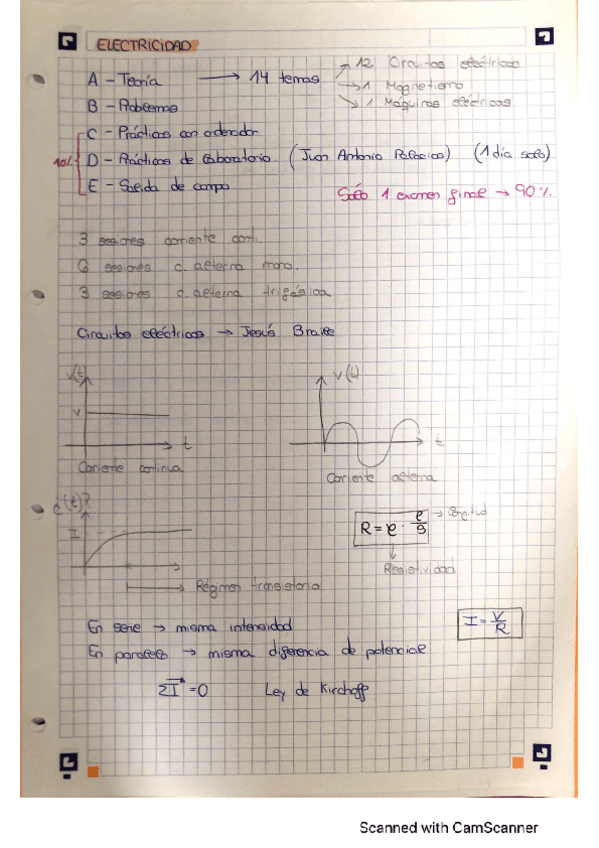 ELECTRICIDAD
A - Teoría → 14 temas
→ 12 Circuitos eléctricos
→ 1 Magnetismo
→ 1 Máquinas eléctricas
B - Problemas
C - Prácticas con ordenador
10% D - Prácticas de Laboratorio. (Juan Antonio Palacios) (1 día solo)
E - Salida de campo
Solo 1 examen final → 90%.
3 sesiones corriente cont.
6 sesiones c. alterna mono.
3 sesiones c. alterna trifásica
Circuitos eléctricos → Jesús Fraile
V(t)
V
t
Corriente continua
V(t)
t
Corriente alterna
i(t)?
I
Régimen transitorio
R = ρ · ℓ/S → Longitud
Resistividad
En serie → misma intensidad
En paralelo → misma diferencia de potencial
I = V/R
ΣI = 0 Ley de Kirchoff
Scanned with CamScanner